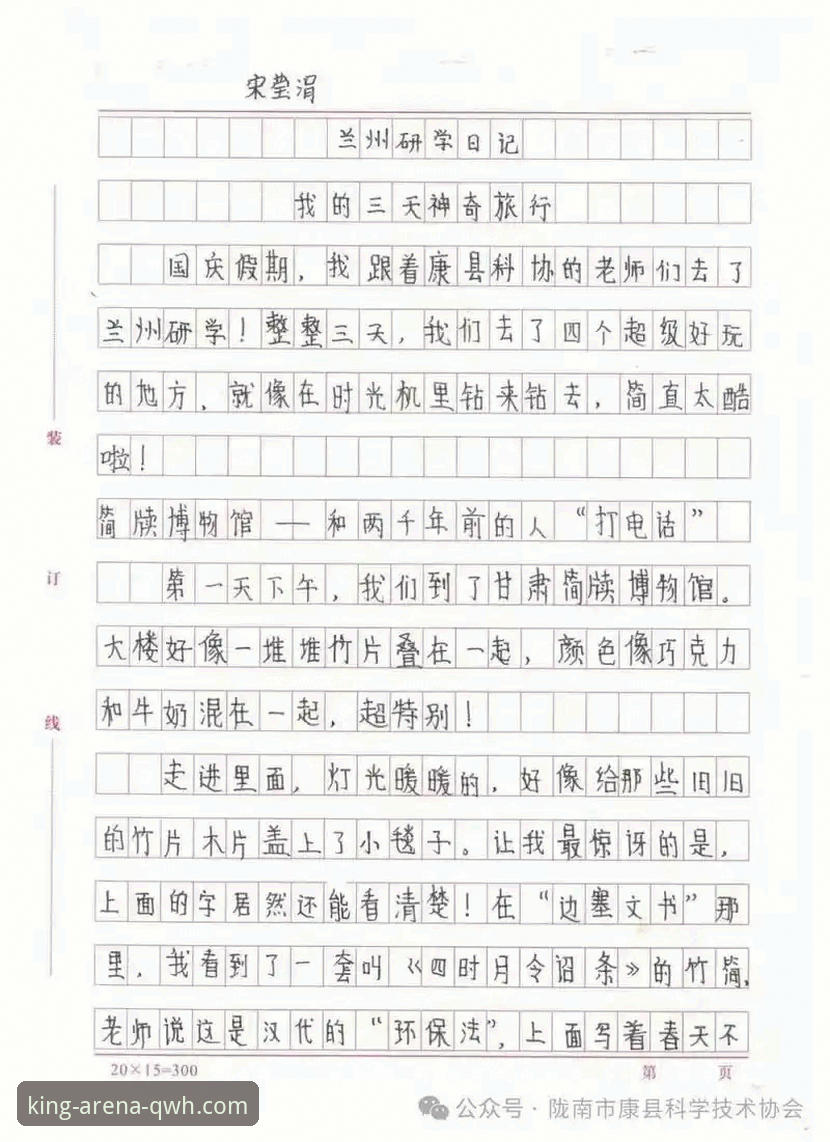 宋莹涓
兰州研学日记
我的三天神奇旅行
国庆假期，我跟着康县科协的老师们去了
兰州研学！整整三天，我们去了四个超级好玩
的地方，就像在时光机里钻来钻去，简直太酷
啦！
简牍博物馆——和两千年前的人“打电话”
第一天下午，我们到了甘肃简牍博物馆。
大楼好像一堆堆竹片叠在一起，颜色像巧克力
和牛奶混在一起，超特别！
走进里面，灯光暖暖的，好像给那些旧旧
的竹片木片盖上了小毯子。让我最惊讶的是，
上面的字居然还能看清楚！在“边塞文书”那
里，我看到了一套叫《四时月令诏条》的竹简，
老师说这是汉代的“环保法”，上面写着春天不
装
订
线
20×15=300
第 页
king-arena-qwh.com
公众号·陇南市康县科学技术协会